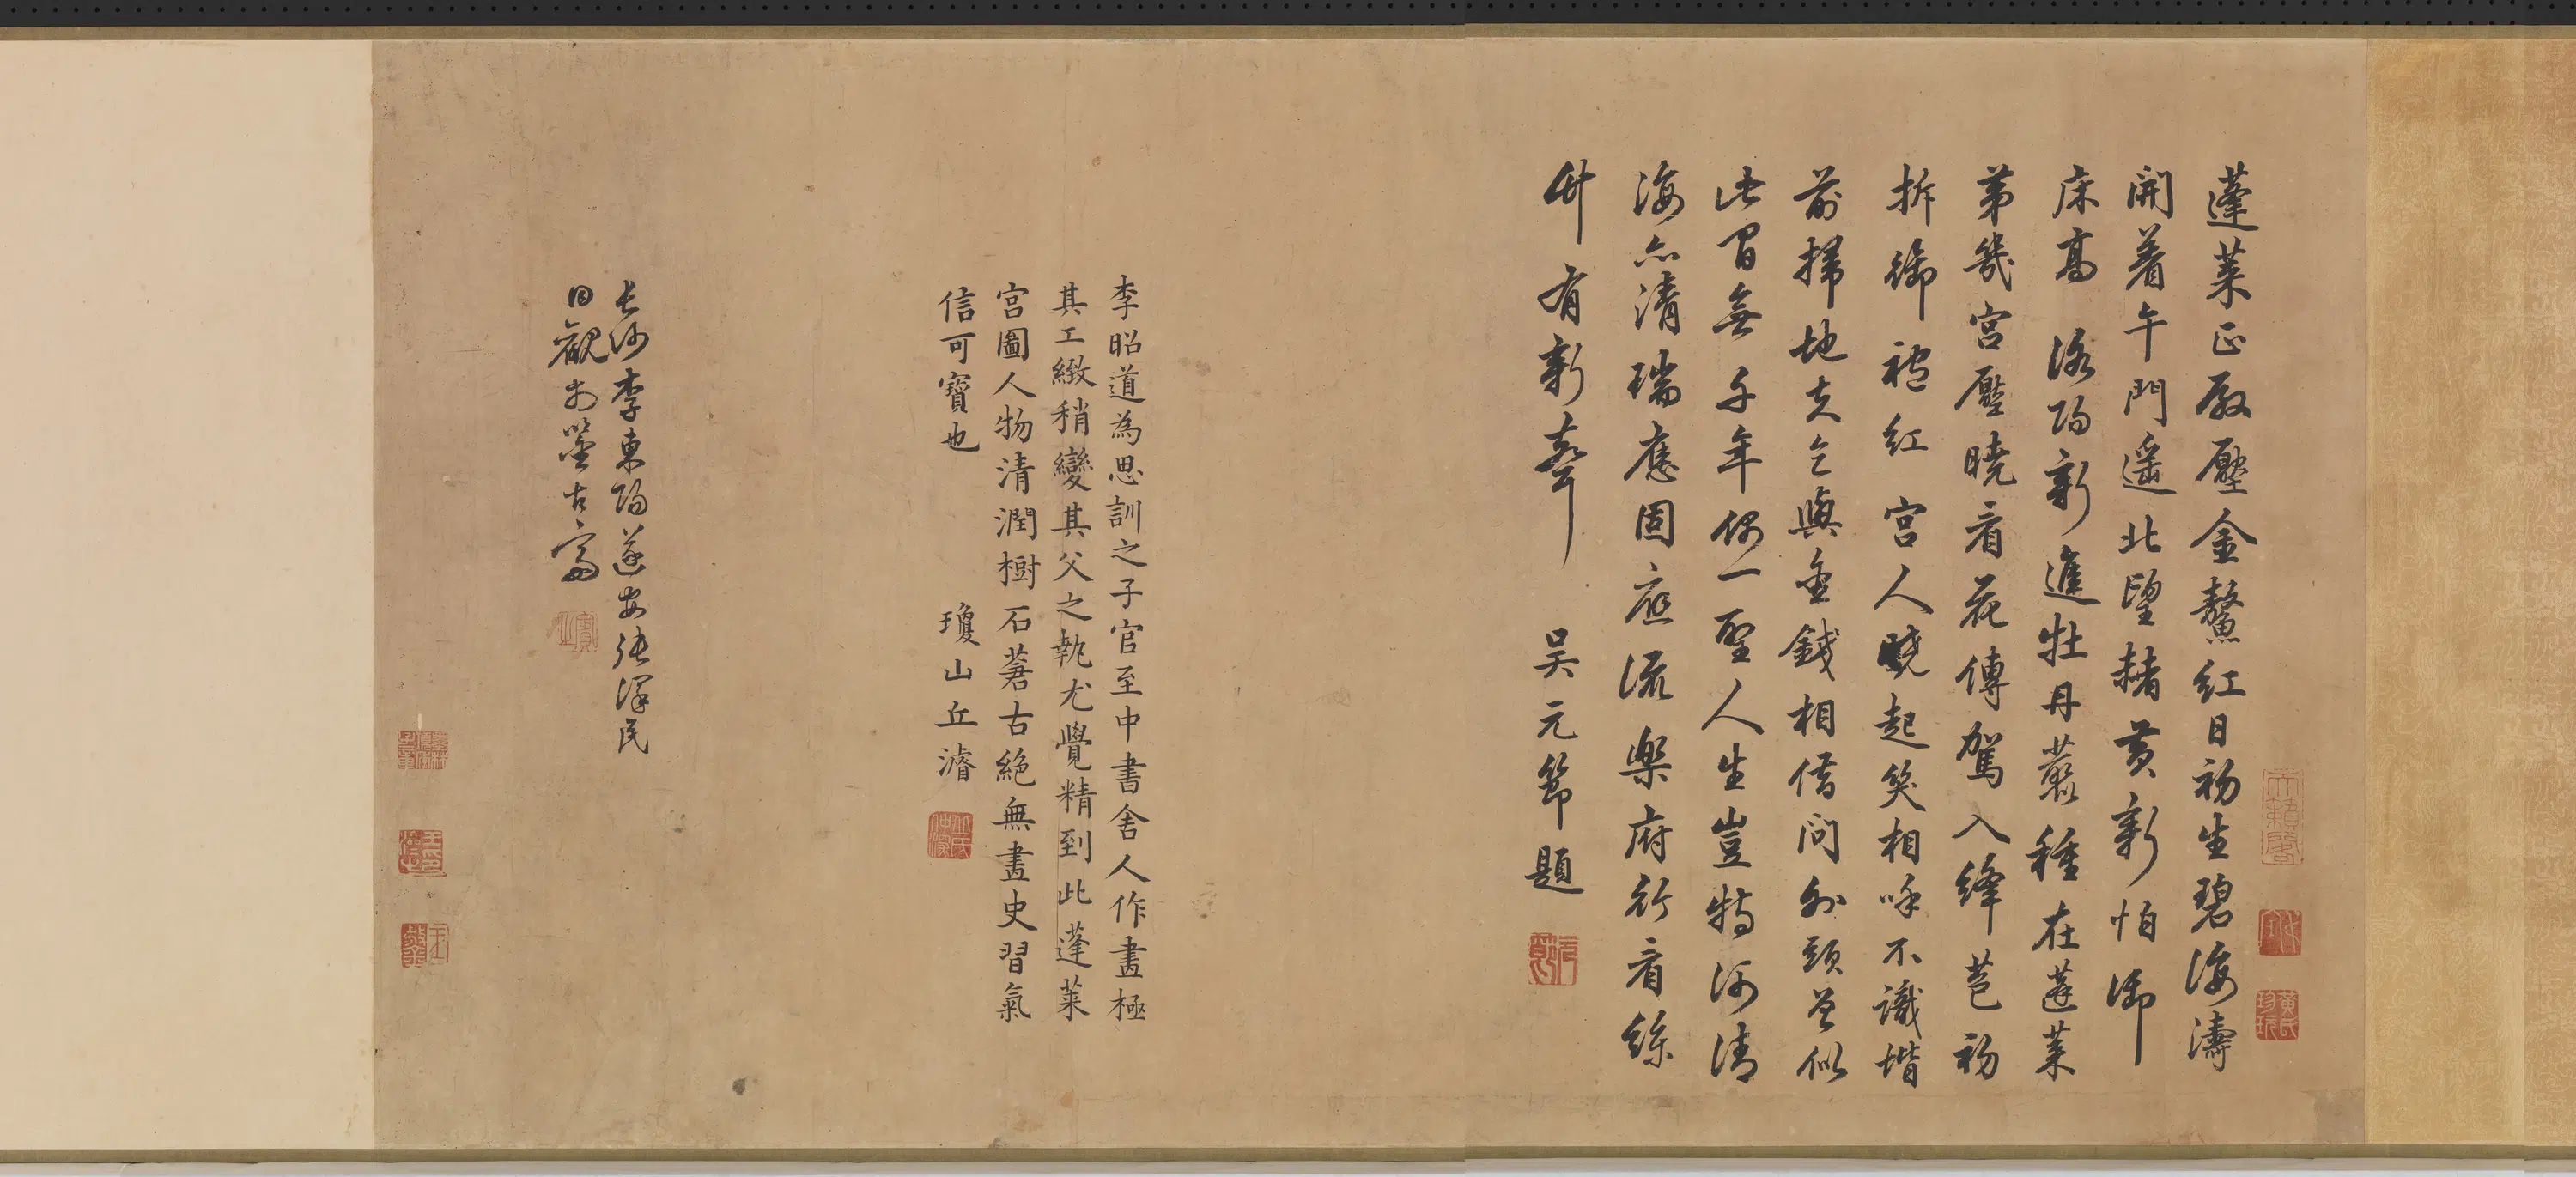 蓬萊正殿壓金鰲紅日初生碧海濤
開着午門遥北望赭黃新怕御
床高 洛陽新進牡丹叢種在蓬萊
第幾宮壓曉看花傳駕入絳苞初
拆御袍紅 宮人曉起笑相呼不識堦
前掃地夫乞與金錢相借問外頭還似
此間無 千年偶一聖人生豈特河清
海亦清瑞應固應流樂府行看絲
竹有新聲 吳元節題
李昭道為思訓之子官至中書舍人作畫極
其工緻稍變其父之執尤覺精到此蓬萊
宮圖人物清潤樹石蒼古絕無畫史習氣
信可寶也 瓊山丘濬
長沙李東陽遂安張澤民
同觀於鑒古齋
天籟閣
黃氏珍玩